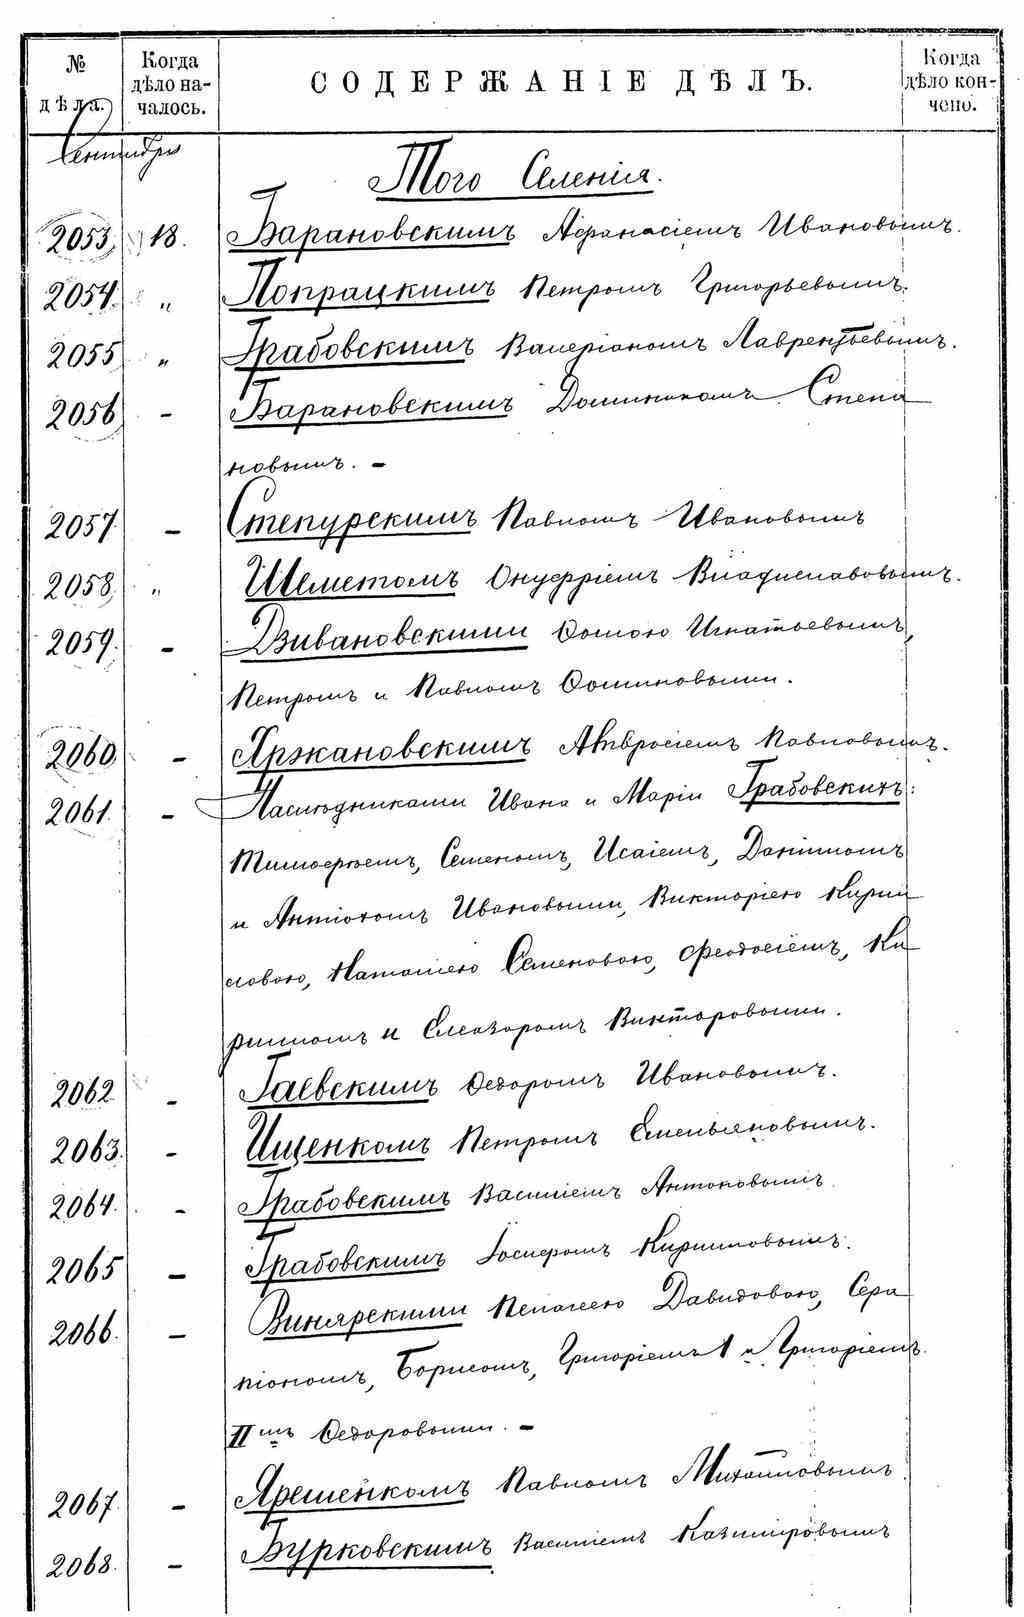 № дѣла.
Когда дѣло началось.
СОДЕРЖАНІЕ ДѢЛЪ.
Когда дѣло кончено.
Сентября
Того Селенія.
2053. 18. Барановскимъ Афанасіемъ Ивановымъ.
2054. „ Попрацкимъ Петромъ Григорьевымъ.
2055 „ Грабовскимъ Валеріаномъ Лаврентьевымъ.
2056 – Барановскимъ Доминикомъ Степа
новымъ. –
2057. – Степурскимъ Павломъ Ивановымъ
2058. „ Шеметомъ Онуфріемъ Владиславовымъ.
2059. – Дзивановскими Ѳомою Игнатьевымъ,
Петромъ и Павломъ Ѳоминовыми.
2060. – Яржановскимъ Амвросіемъ Павловымъ.
2061. – Наслѣдниками Ивана и Маріи Грабовскихъ:
Тимоѳеемъ, Семеномъ, Исаіемъ, Даніиломъ
и Антіохомъ Ивановыми, Викторіею Кирил
ловою, Наталіею Семеновою, Феодосіемъ, Ки
рилломъ и Елеазаромъ Викторовыми.
2062. – Гаевскимъ Ѳедоромъ Ивановымъ.
2063. – Ищенкомъ Петромъ Емельяновымъ.
2064. – Грабовскимъ Василіемъ Антоновымъ
2065 – Грабовскимъ Іосифомъ Кирилловымъ.
2066. – Винярскими Пелагеею Давидовою, Сера
піономъ, Борисомъ, Григоріемъ 1 и Григоріемъ
II мъ Ѳедоровыми. –
2067. – Ярешенкомъ Павломъ Михайловымъ
2068. – Бурковскимъ Василіемъ Казиміровымъ